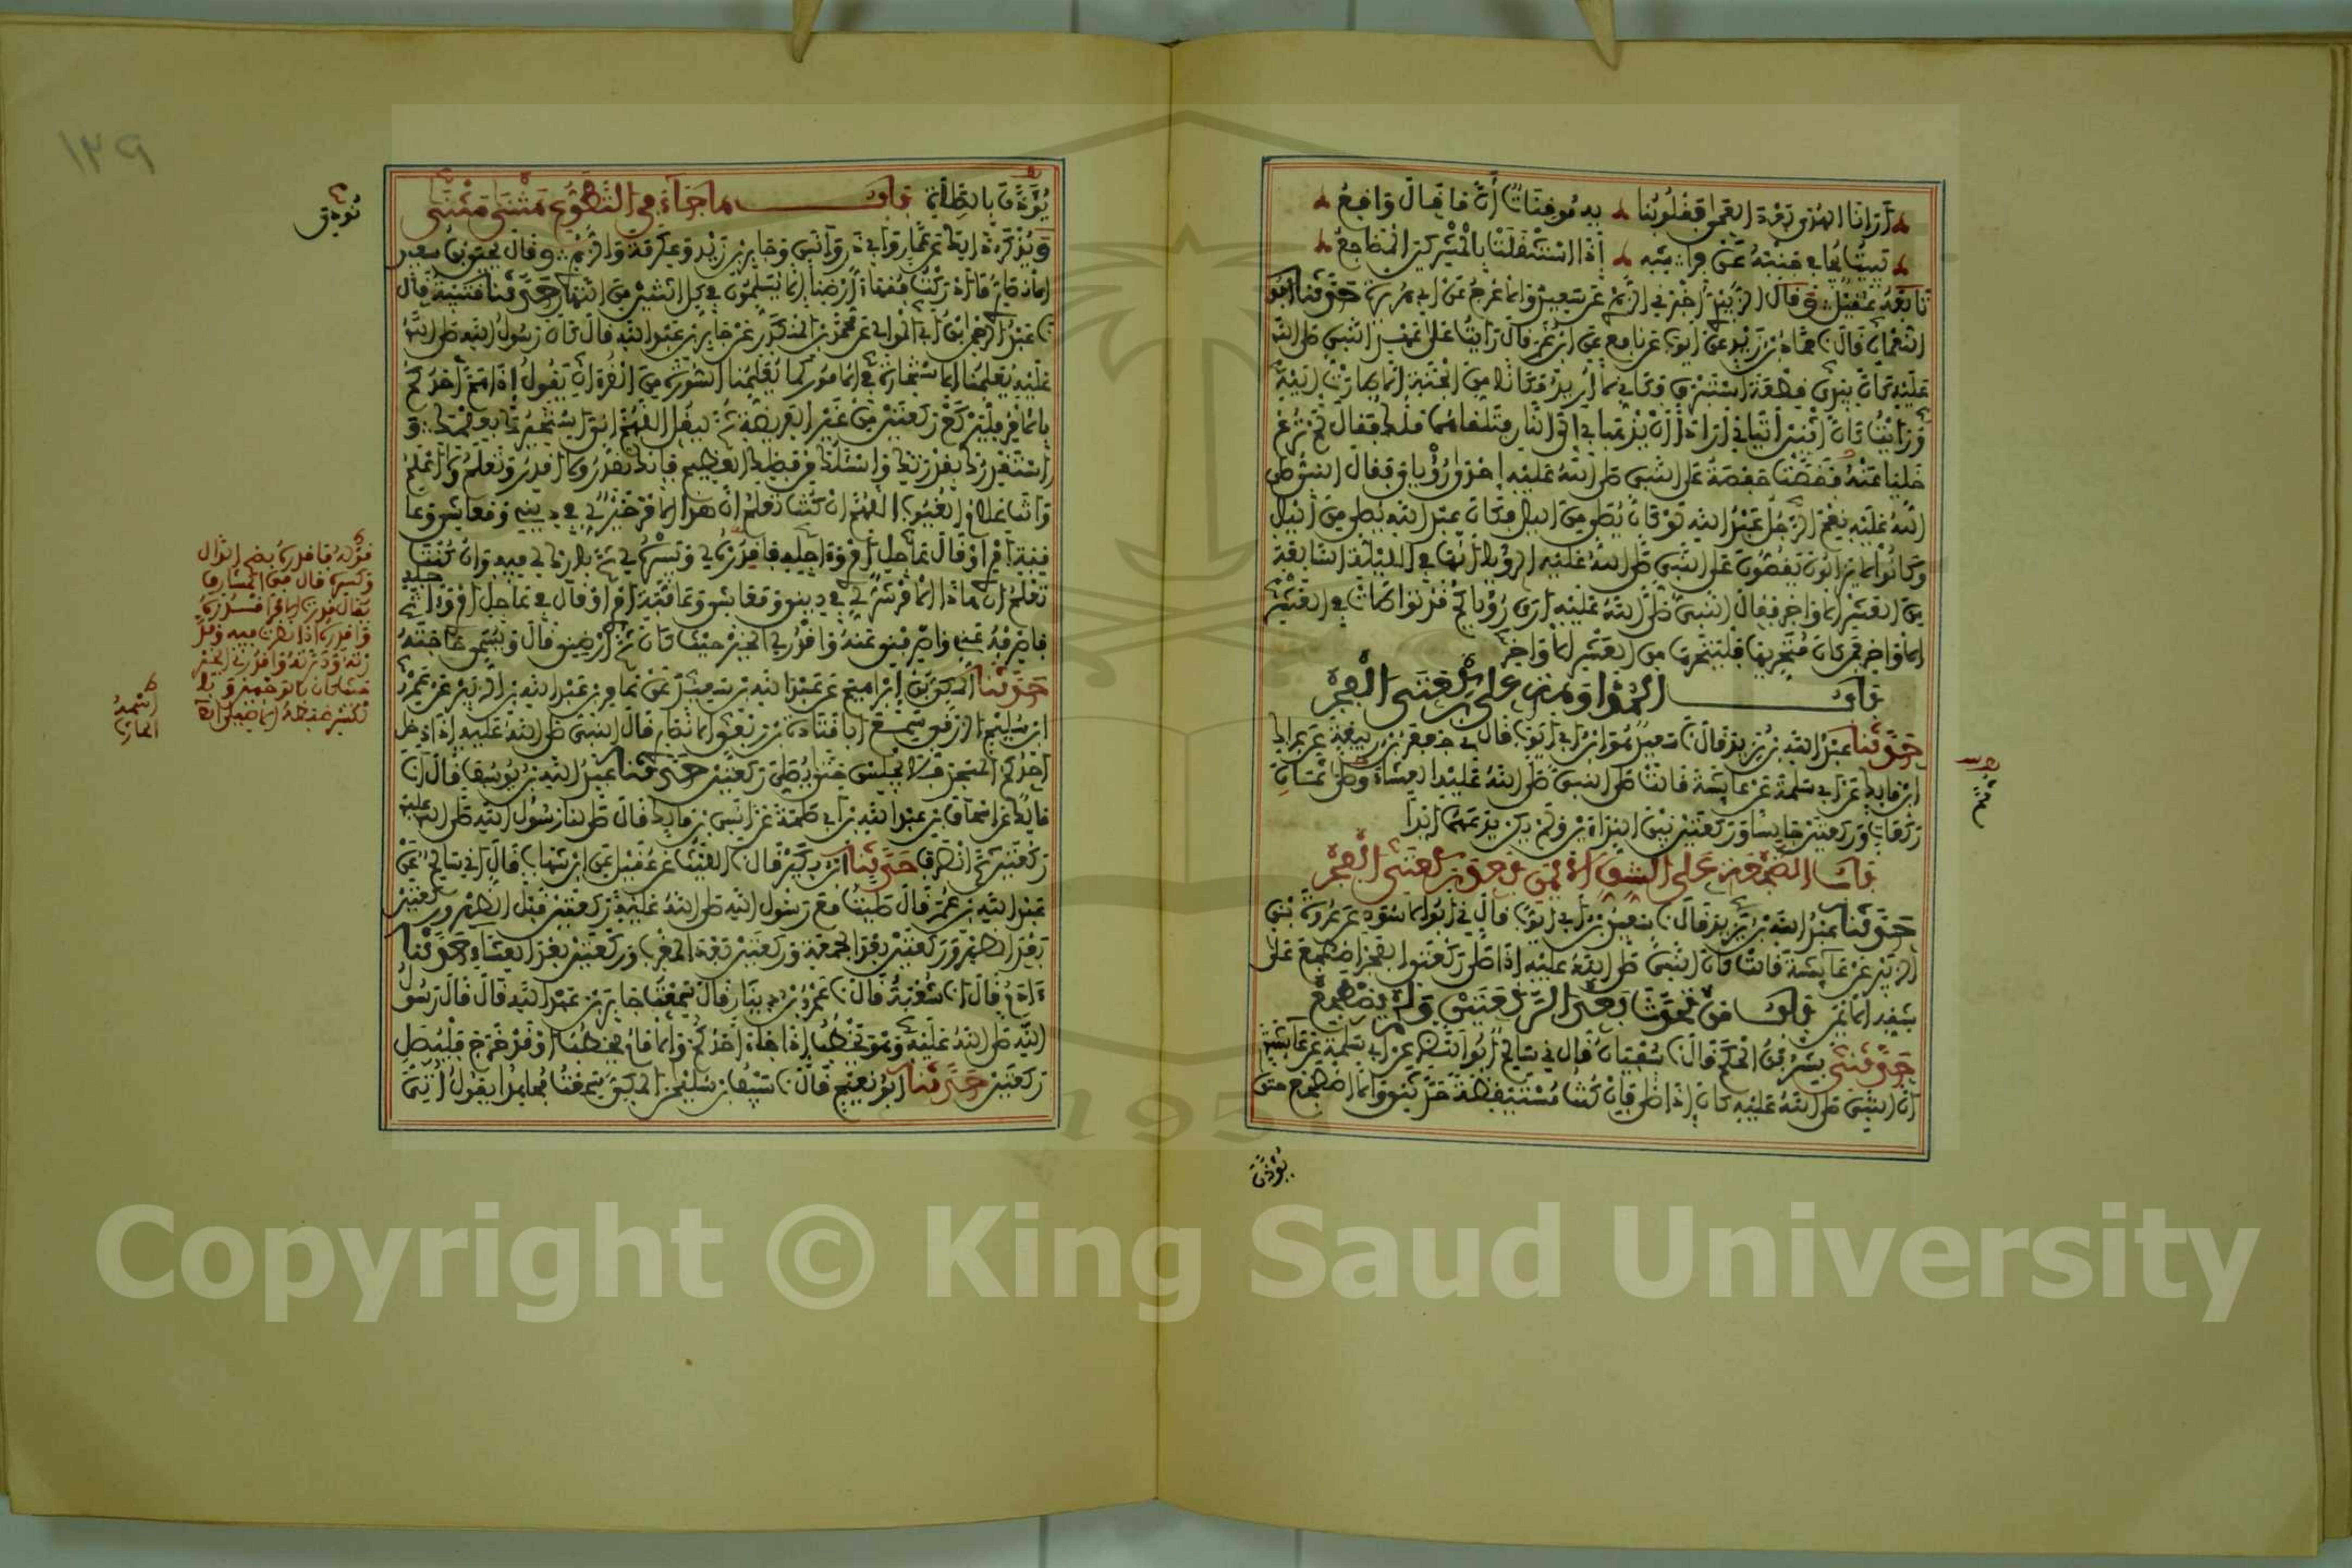 أرانا الهدى بعد العمى فقلوبنا به موقنات أن ما قال واقع
يبيت يجافي جنبه عن فراشه إذا استثقلت بالمشركين المضاجع
تابعه عقيل وقال الزبيدي أخبرني الزهري عن سعيد والاعرج عن ابي هريرة حدثنا ابو
النعمان قال نا حماد بن زيد عن ايوب عن نافع عن ابن عمر قال رأيت على عهد النبي صلى الله
عليه كأن بيدي قطعة استبرق فكأني لا أريد مكانا من الجنة الا طارت إليه
ورأيت كأن اثنين أتياني أرادا أن يذهبا بي إلى النار فتلقاهما ملك فقال لم ترع
خليا عنه فقصت حفصة على النبي صلى الله عليه إحدى رؤياي فقال النبي صلى
الله عليه نعم الرجل عبد الله لو كان يصلي من الليل فكان عبد الله يصلي من الليل
وكانوا لا يزالون يقصون على النبي صلى الله عليه الرؤيا أنها في الليلة السابعة
من العشر الأواخر فقال النبي صلى الله عليه أرى رؤياكم قد تواطأت في العشر
الأواخر فمن كان متحريها فليتحرها من العشر الأواخر
باب المداومة على ركعتي الفجر
حدثنا عبد الله بن يزيد قال نا سعيد هو ابن ابي ايوب قال ني جعفر بن ربيعة عن عراك
ابن مالك عن ابي سلمة عن عايشة قالت صلى النبي صلى الله عليه العشاء وصلى ثمان
ركعات وركعتين جالسا وركعتين بين النداءين ولم يكن يدعهما ابدا
باب الضجعة على الشق الأيمن بعد ركعتي الفجر
حدثنا عبد الله بن يزيد قال نا سعيد بن ابي ايوب قال ني ابو الأسود عن عروة بن
الزبير عن عايشة قالت كان النبي صلى الله عليه إذا صلى ركعتي الفجر اضطجع على
شقه الأيمن باب من تحدث بعد الركعتين ولم يضطجع
حدثني بشر بن الحكم قال نا سفيان قال ني سالم ابو النضر عن ابي سلمة عن عايشة
أن النبي صلى الله عليه كان إذا صلى فإن كنت مستيقظة حدثني والا اضطجع حتى
يؤذن
١٣٩
يؤذن بالصلاة باب ما جاء في التطوع مثنى مثنى
ويذكر ذلك عن عمار وابي ذر وأنس وجابر بن زيد وعكرمة والزهري وقال يحيى بن سعيد
الأنصاري ما أدركت فقهاء أرضنا إلا يسلمون في كل اثنتين من النهار حدثنا قتيبة قال
نا عبد الرحمن بن ابي الموالي عن محمد بن المنكدر عن جابر بن عبد الله قال كان رسول الله صلى الله
عليه يعلمنا الاستخارة في الأمور كما يعلمنا السورة من القرءان يقول إذا هم أحدكم
بالأمر فليركع ركعتين من غير الفريضة ثم ليقل اللهم اني استخيرك بعلمك و
استقدرك بقدرتك واسئلك من فضلك العظيم فإنك تقدر ولا أقدر وتعلم ولا أعلم
وانت علام الغيوب اللهم ان كنت تعلم أن هذا الأمر خير لي في ديني ومعاشي وعا
قبة امري او قال عاجل امري وآجله فاقدره لي ويسره لي ثم بارك لي فيه وان كنت
تعلم ان هذا الأمر شر لي في ديني ومعاشي وعاقبة امري او قال في عاجل امري وآجله
فاصرفه عني واصرفني عنه واقدر لي الخير حيث كان ثم أرضني قال ويسمي حاجته
حدثنا المكي بن ابراهيم عن عبد الله بن سعيد عن عامر بن عبد الله بن الزبير عن عمرو
ابن سليم الزرقي سمع ابا قتادة بن ربعي الأنصاري قال قال النبي صلى الله عليه إذا دخل
احدكم المسجد فلا يجلس حتى يصلي ركعتين حدثنا عبد الله بن يوسف قال انا
مالك عن اسحاق بن عبد الله بن ابي طلحة عن انس بن مالك قال صلى لنا رسول الله صلى الله عليه
ركعتين ثم انصرف حدثنا ابن بكير قال نا الليث عن عقيل عن ابن شهاب قال اني سالم عن
عبد الله بن عمر قال صليت مع رسول الله صلى الله عليه ركعتين قبل الظهر وركعتين
بعد الظهر وركعتين بعد الجمعة وركعتين بعد المغرب وركعتين بعد العشاء حدثنا
ءادم قال انا شعبة قال نا عمرو بن دينار قال سمعت جابر بن عبد الله قال قال رسول
الله صلى الله عليه وهو يخطب إذا جاء أحدكم والإمام يخطب او قد خرج فليصل
ركعتين حدثنا ابو نعيم قال نا سيف بن سليمن المكي سمعت مجاهدا يقول أتي